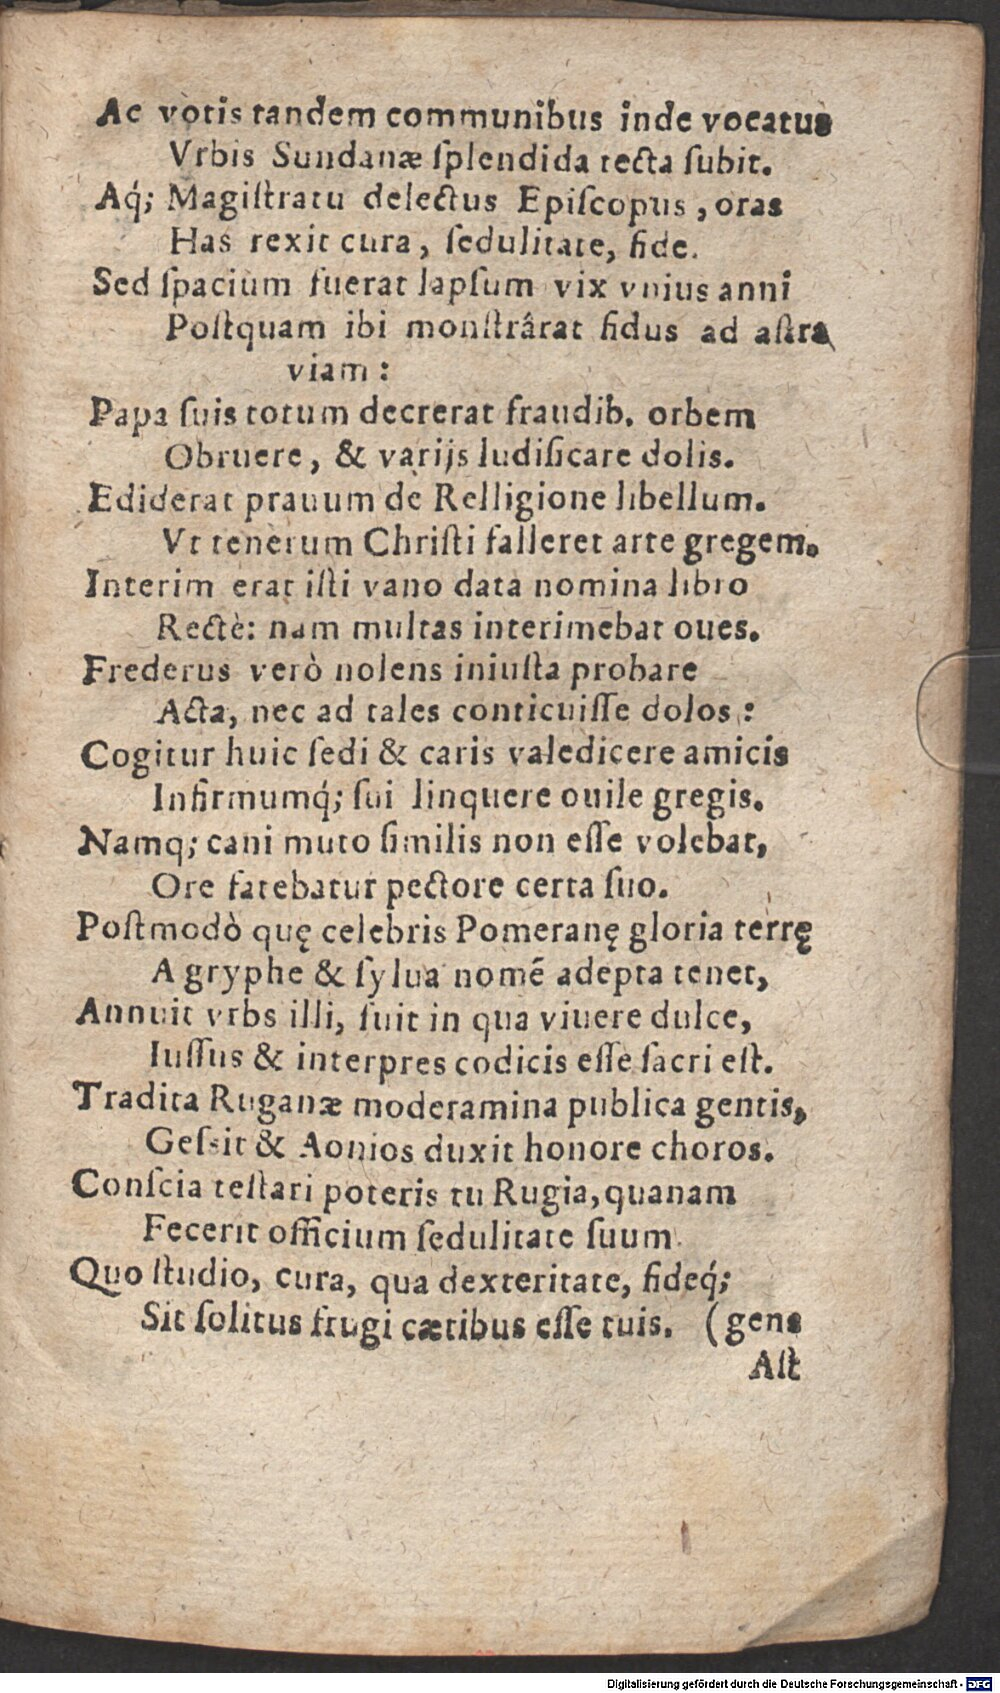 Ac votis tandem communibus inde vocatus
Vrbis Sundanæ ſplendida tecta ſubit.
Aq́; Magiſtratu delectus Epiſcopus, oras
Has rexit cura, ſedulitate, fide.
Sed ſpacium fuerat lapſum vix vnius anni
Poſtquam ibi monſtrârat fidus ad aſtra
viam:
Papa ſuis totum decrerat fraudib. orbem
Obruere, & varijs ludificare dolis.
Ediderat prauum de Relligione libellum.
Vt tenerum Chriſti falleret arte gregem.
Interim erat iſti vano data nomina libro
Rectè: nam multas interimebat oues.
Frederus verò nolens iniuſta probare
Acta, nec ad tales conticuiſſe dolos:
Cogitur huic ſedi & caris valedicere amicis
Infirmumq́; ſui linquere ouile gregis.
Namq; cani muto ſimilis non eſſe volebat,
Ore fatebatur pectore certa ſuo.
Poſtmodò quę celebris Pomeranę gloria terrę
A gryphe & ſylua nomē adepta tenet,
Annuit vrbs illi, fuit in qua viuere dulce,
Iuſſus & interpres codicis eſſe ſacri eſt.
Tradita Ruganæ moderamina publica gentis,
Geſsit & Aonios duxit honore choros.
Conſcia teſtari poteris tu Rugia, quanam
Fecerit officium ſedulitate ſuum.
Quo ſtudio, cura, qua dexteritate, fideq́;
Sit ſolitus frugi cætibus eſſe tuis. (gens
Aſt
Digitalisierung gefördert durch die Deutsche Forschungsgemeinschaft - DFG